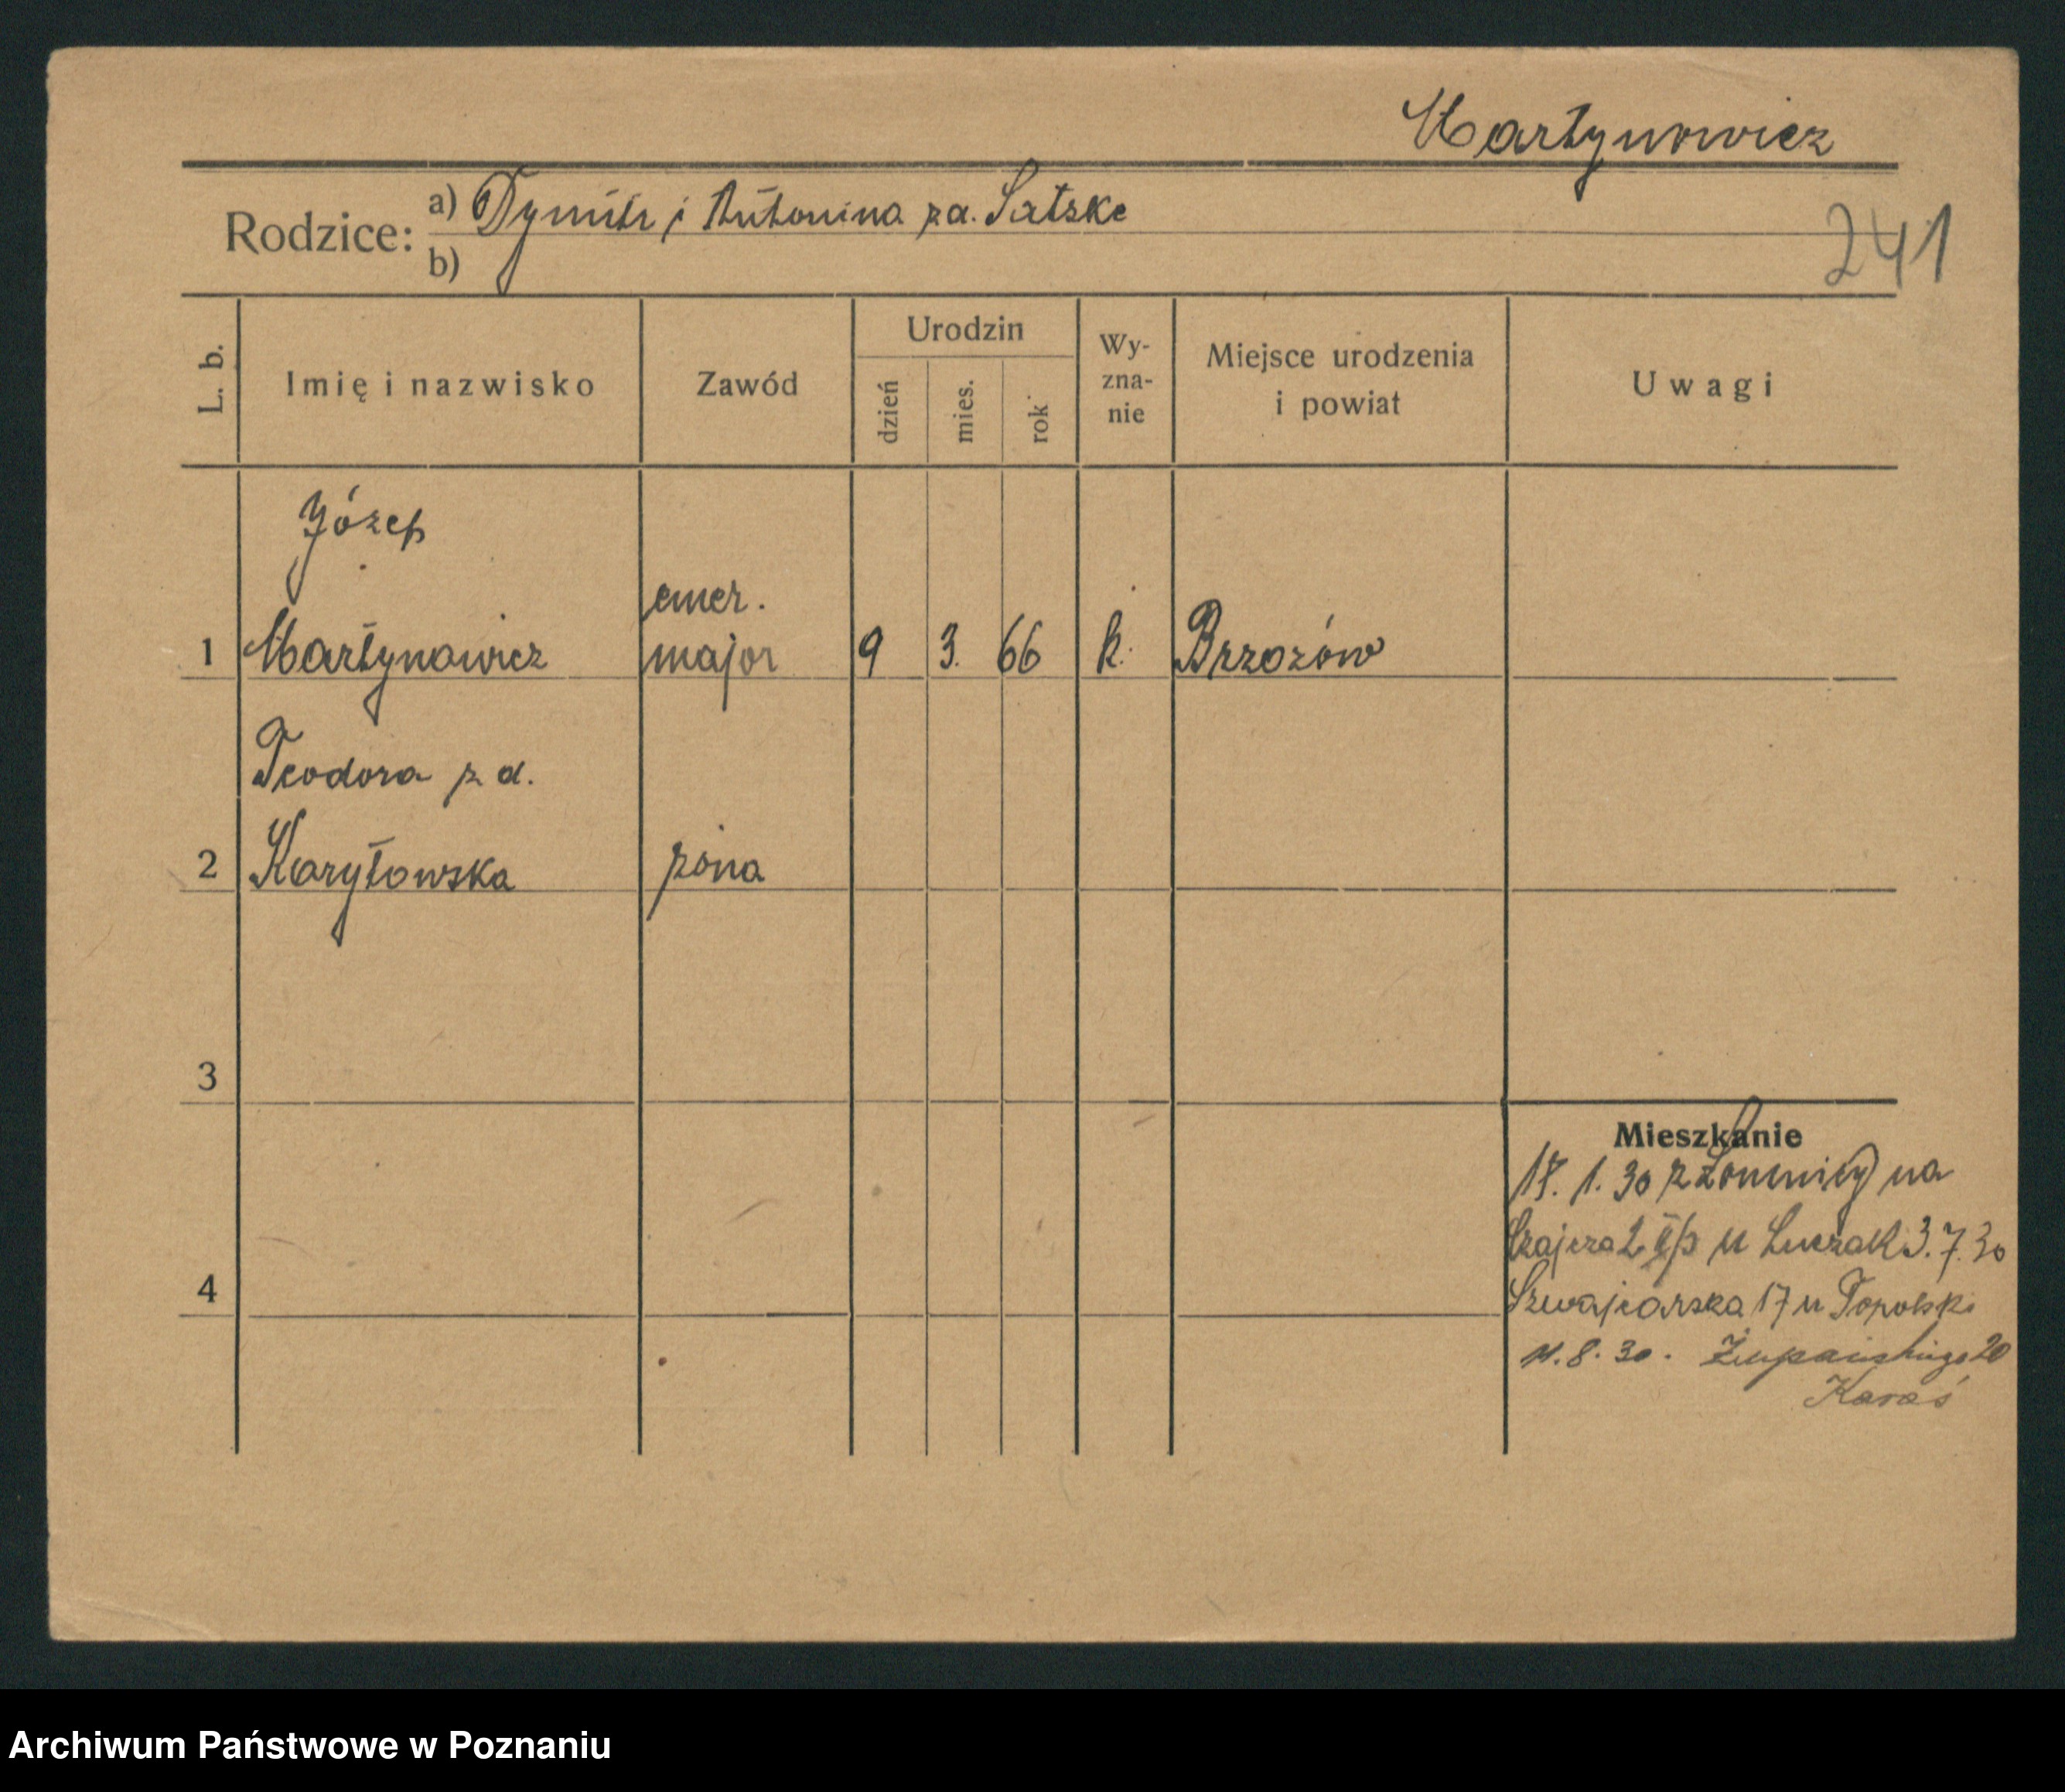 Martynowicz
Rodzice: a) Dymitr i Antonina za. Satske
b)
241
L. b.
Imię i nazwisko
Zawód
Urodzin
dzień
mies.
rok
Wy-
zna-
nie
Miejsce urodzenia
i powiat
Uwagi
Józef
emer.
1 Martynowicz major 9 3. 66 k. Brzozów
Teodora z d.
2 Karytowska żona
3
Mieszkanie
17. 1. 30 z Łomnicy na
2 II/p u Luczak 3. 7. 30
4
Szwajcarska 17 u Topolski
11. 8. 30. Żupańskiego 20
Karaś
Archiwum Państwowe w Poznaniu